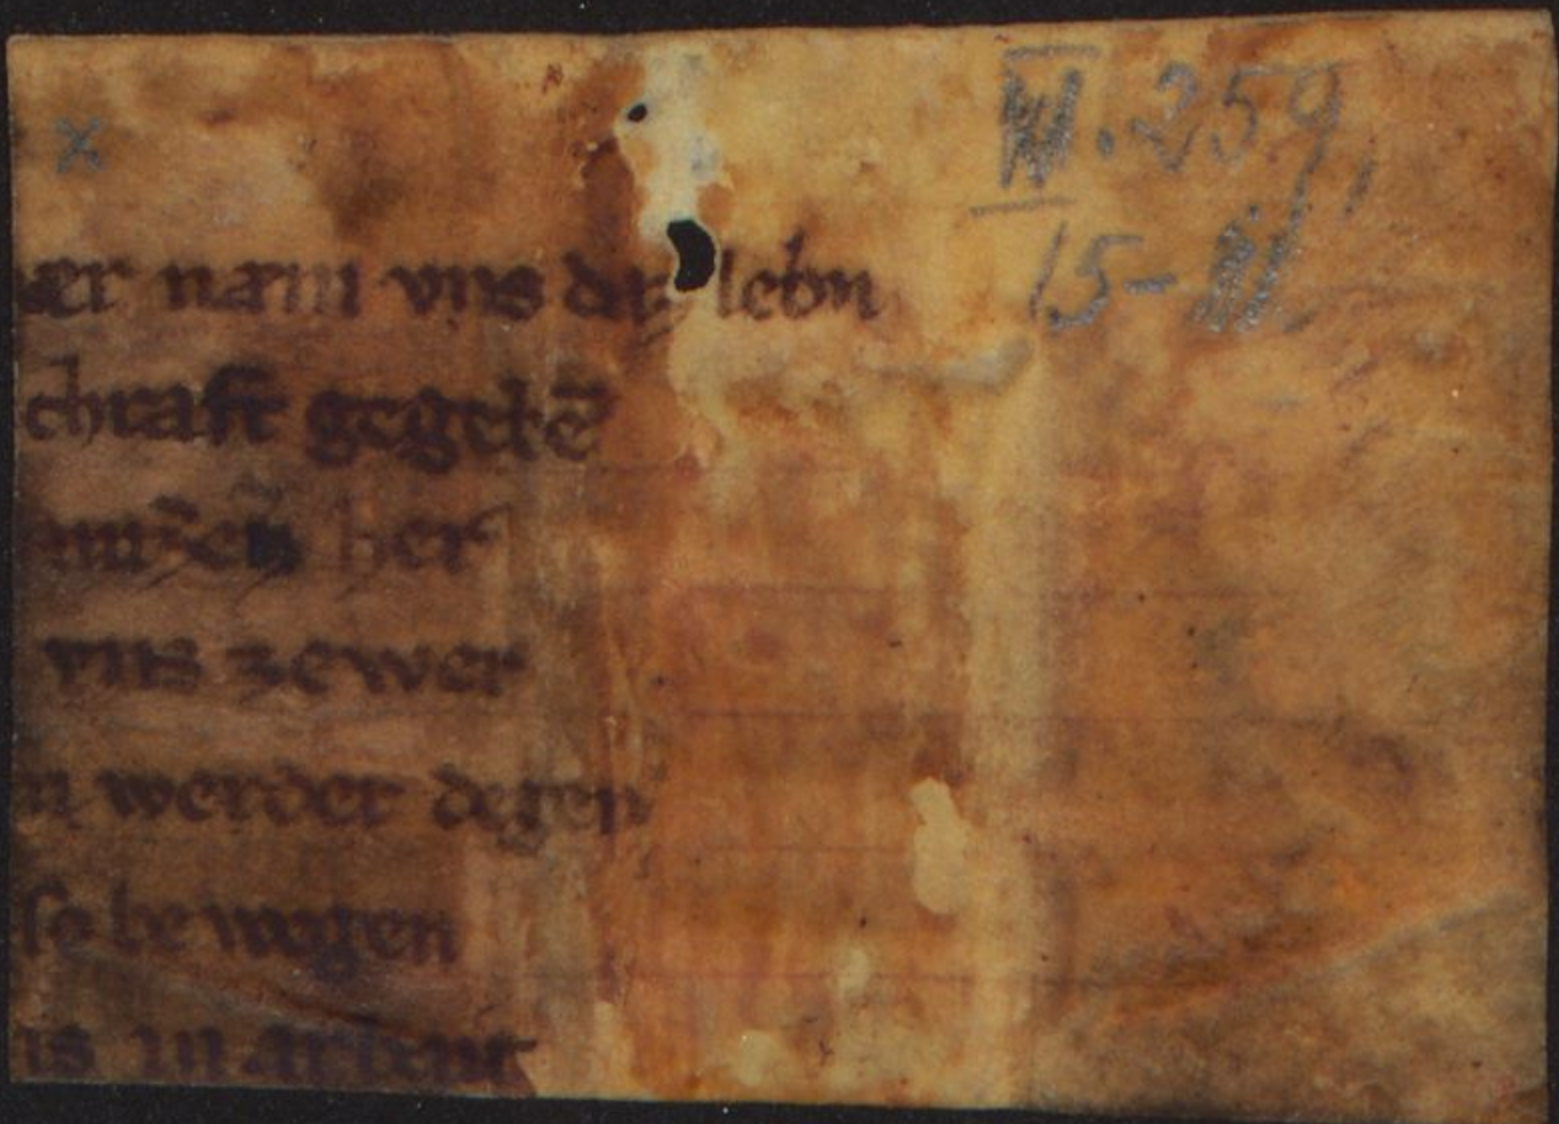 x
VI.259,
15-
ær næm vns daz lebn
chraft gegebē
her
vns zewer
n werder degen
so be wogen
is in arbeit